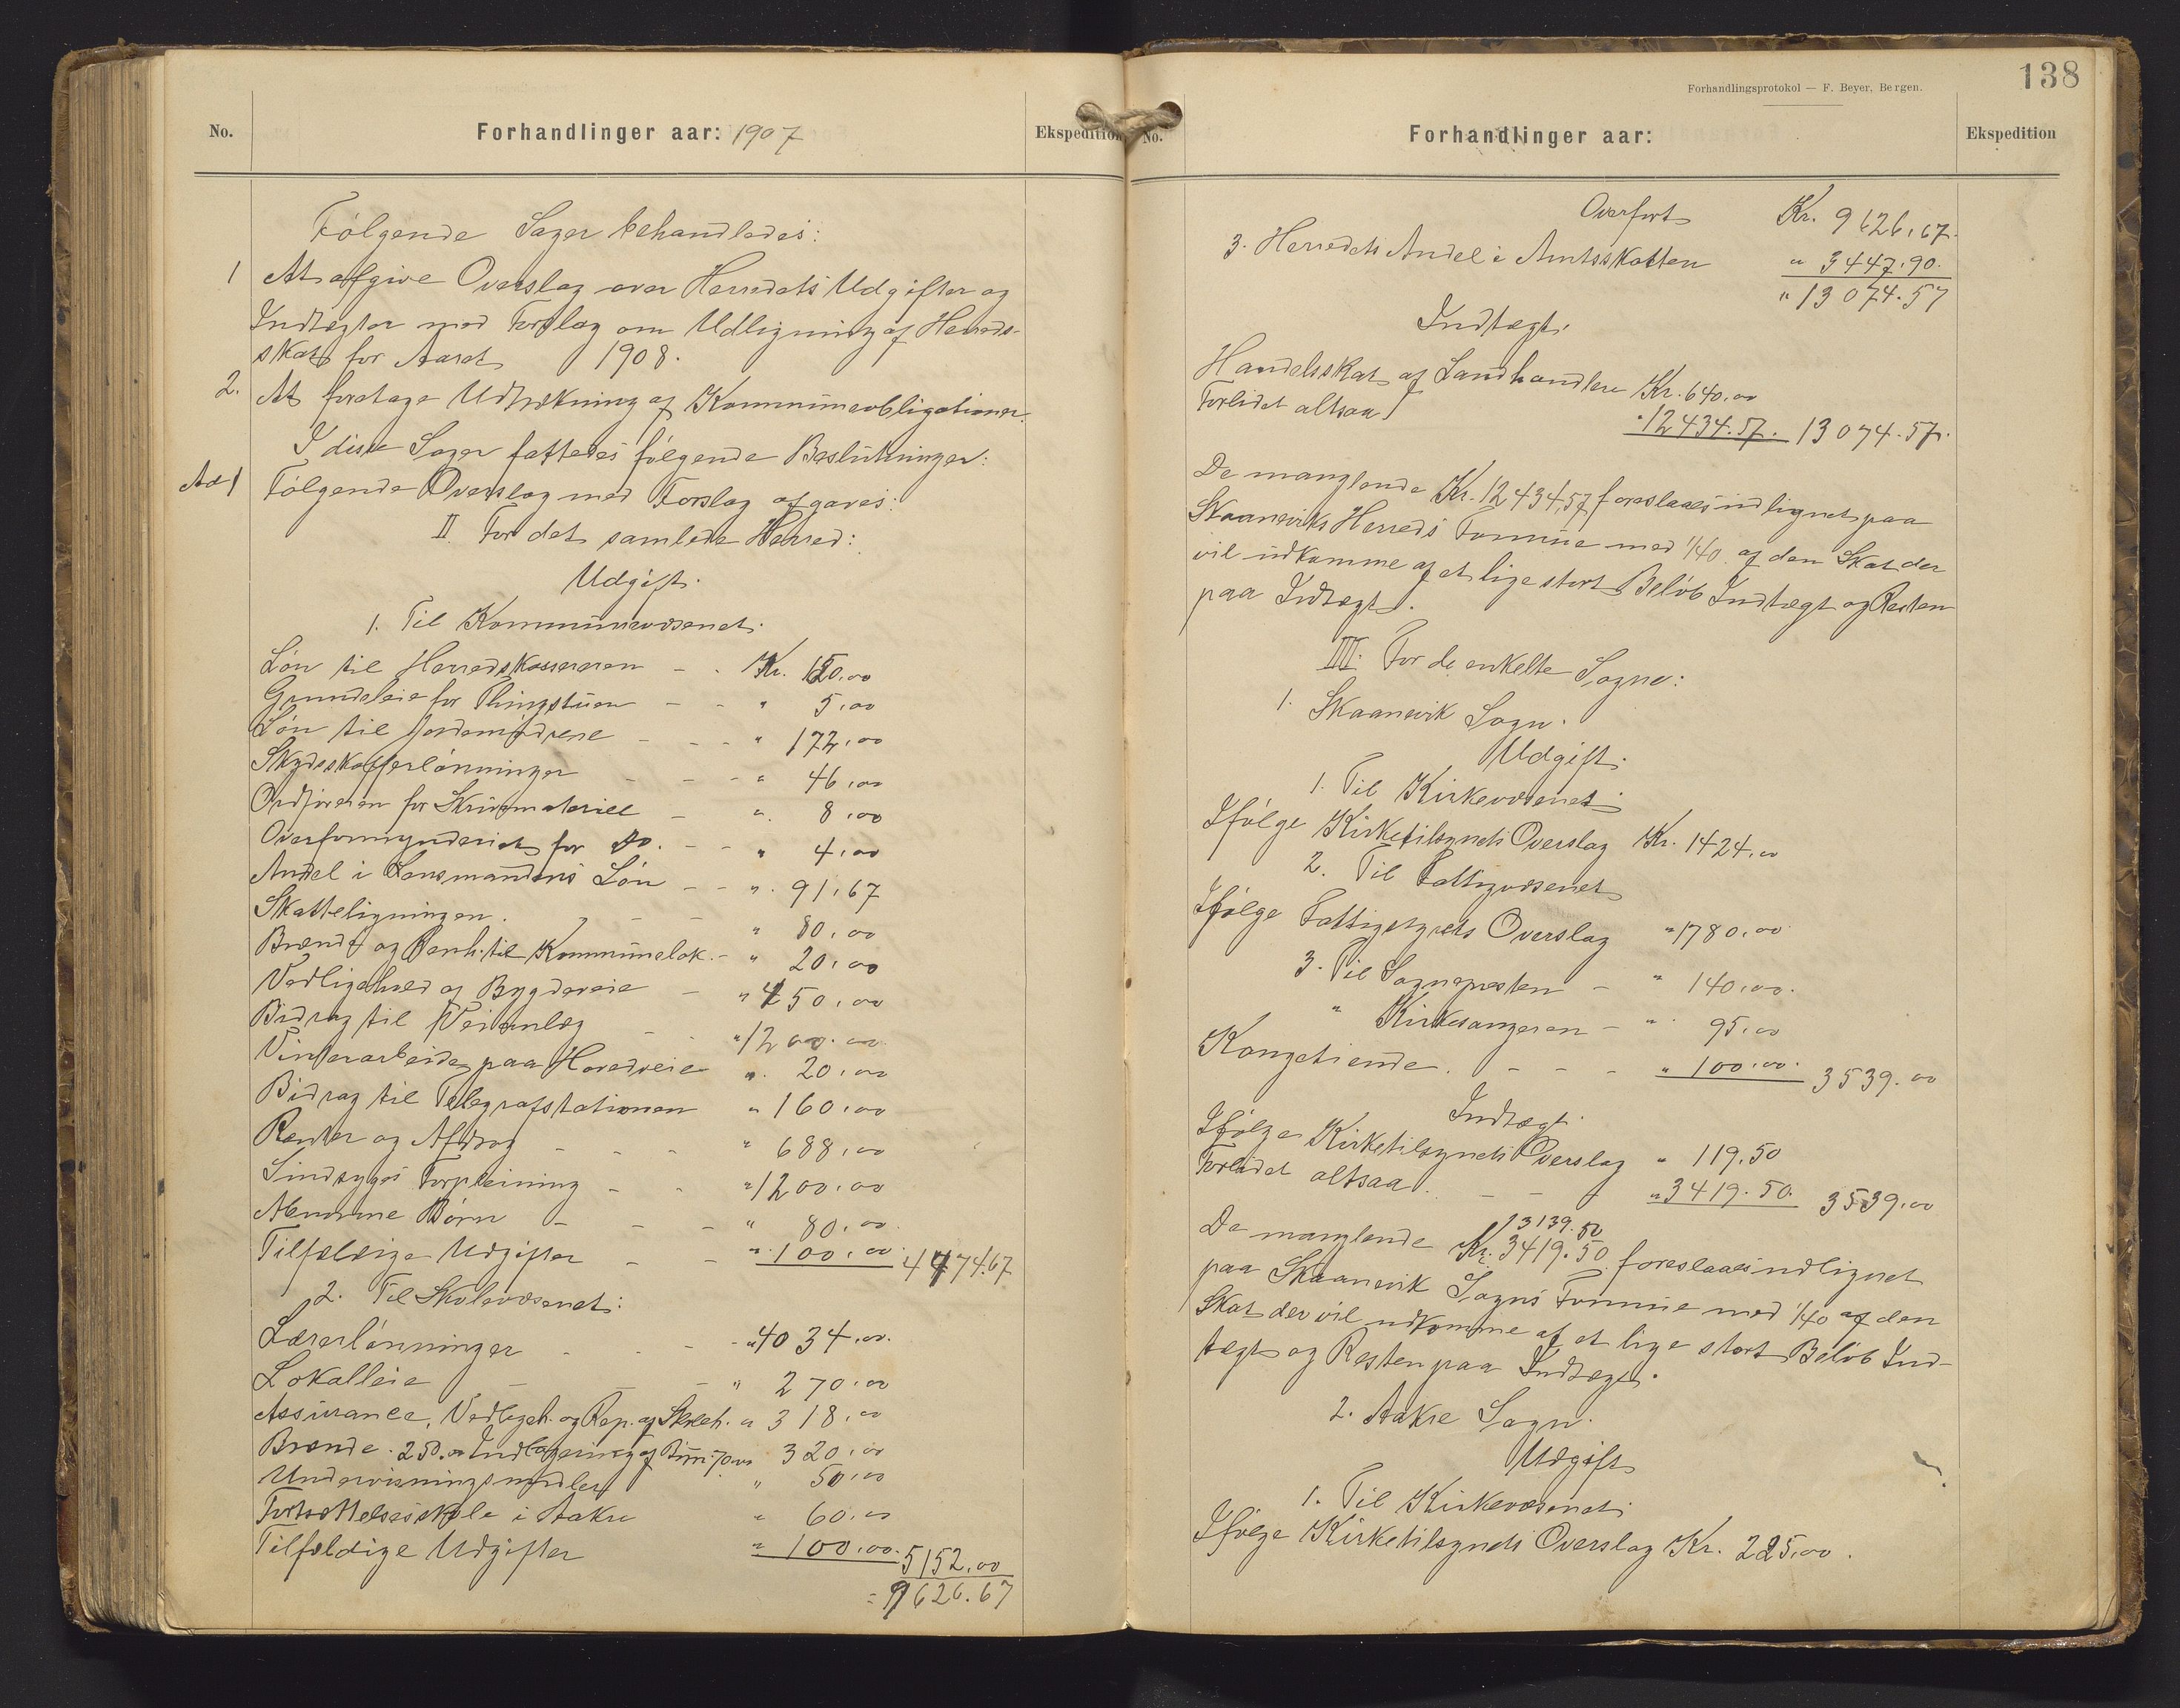 No.
Forhandlinger aar: 1907
Ekspedition
Følgende Sager behandledes:
1 At afgive Overslag over Herredets Udgifter og
Indtægter med Forslag om Udligning af Herreds-
skat for Aaret 1908.
2. At foretage Udtrækning af Kommuneobligationer.
I disse Sager fattedes følgende Beslutninger:
Ad 1 Følgende Overslag med Forslag afgaves:
II. For det samlede Herred:
Udgift.
1. Til Kommunevæsenet.
Løn til Herredskassereren - - Kr. 150,00
Grundleie for Thingstuen - - " 5,00
Løn til Jordemødrene - - - " 172,00
Skydsskafferlønninger - - - " 46,00
Ordføreren for Skrivmateriel - " 8,00
Overformynderiet for Do. - - " 4,00
Andel i Lensmandens Løn - - " 91,67
Skatteligningen. - - - " 80,00
Brænde og Renh. til Kommunelok. - " 20,00
Vedligehold af Bygdeveie - " 450,00
Bidrag til Veianlæg - " 1200.00
Vinterarbeide paa Hovedveie " 20,00
Bidrag til Telegrafstationen " 160,00
Renter og Afdrag - - - " 688,00
Sindsyges Forpleining - - " 1200.00
Abnorme Børn - - - " 80,00.
Tilfældige Udgifter - - " 100,00 4474.67
2. Til Skolevæsenet:
Lærerlønninger - - - " 4034,00.
Lokalleie - - - " 270,00
Assurance, Vedligeh. og Rep. af Skoleh. " 318,00
Brænde. 250.00 Indlogering af Børn 70.00 320,00
Undervisningsmidler " 50,00
Fortsættelsesskole i Aakre " 60,00
Tilfældige Udgifter " 100,00. 5152,00
= 9626.67
138
Forhandlingsprotokol — F. Beyer, Bergen.
No.
Forhandlinger aar:
Ekspedition
Overført Kr. 9626,67.
3. Herredets Andel i Amtsskatten " 3447.90.
" 13074.57
Indtægt.
Handelsskat af Landhandlere Kr. 640,00
Forlidet altsaa " 12434.57. 13074.57.
De manglende Kr. 12434,57 foreslaaes udlignet paa
Skaaneviks Herreds Formue med 1/40 af den Skat der
vil udkomme af et lige stort Beløb Indtægt og Resten
paa Indtægt.
III. For de enkelte Sogne:
1. Skaanevik Sogn.
Udgift.
1. Til Kirkevæsenet.
Ifølge Kirketilsynets Overslag Kr. 1424,00
2. Til Fattigvæsenet
Ifølge Fattigstyrets Overslag " 1780,00
3. Til Sognepresten - " 140,00.
" Kirkesangeren - " 95,00
Kongetiende. - - - " 100,00. 3539.00
Indtægt.
Ifølge Kirketilsynets Overslag " 119,50
Forlidet altsaa. - - " 3419.50. 3539,00
13139.50
De manglende Kr. 3419.50 foreslaaes udlignet
paa Skaanevik Sogns Formue med 1/40 af den
Skat der vil udkomme af et lige stort Beløb Ind-
tægt og Resten paa Indtægt.
2. Aakre Sogn.
Udgift
1. Til Kirkevæsenet.
Ifølge Kirketilsynets Overslag Kr. 225,00.